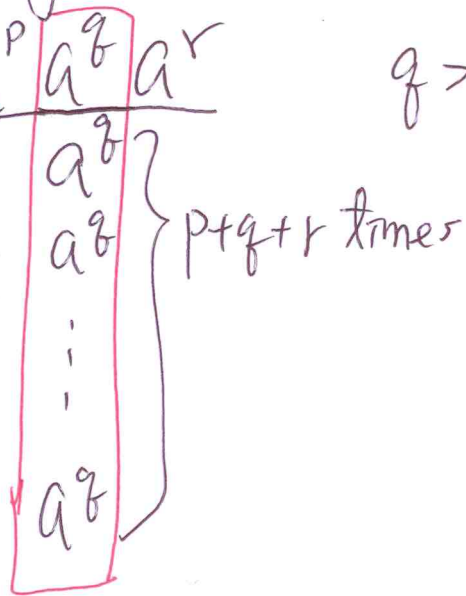 p a^q a^r q >
a^q
a^q } p+q+r times
⋮
a^q